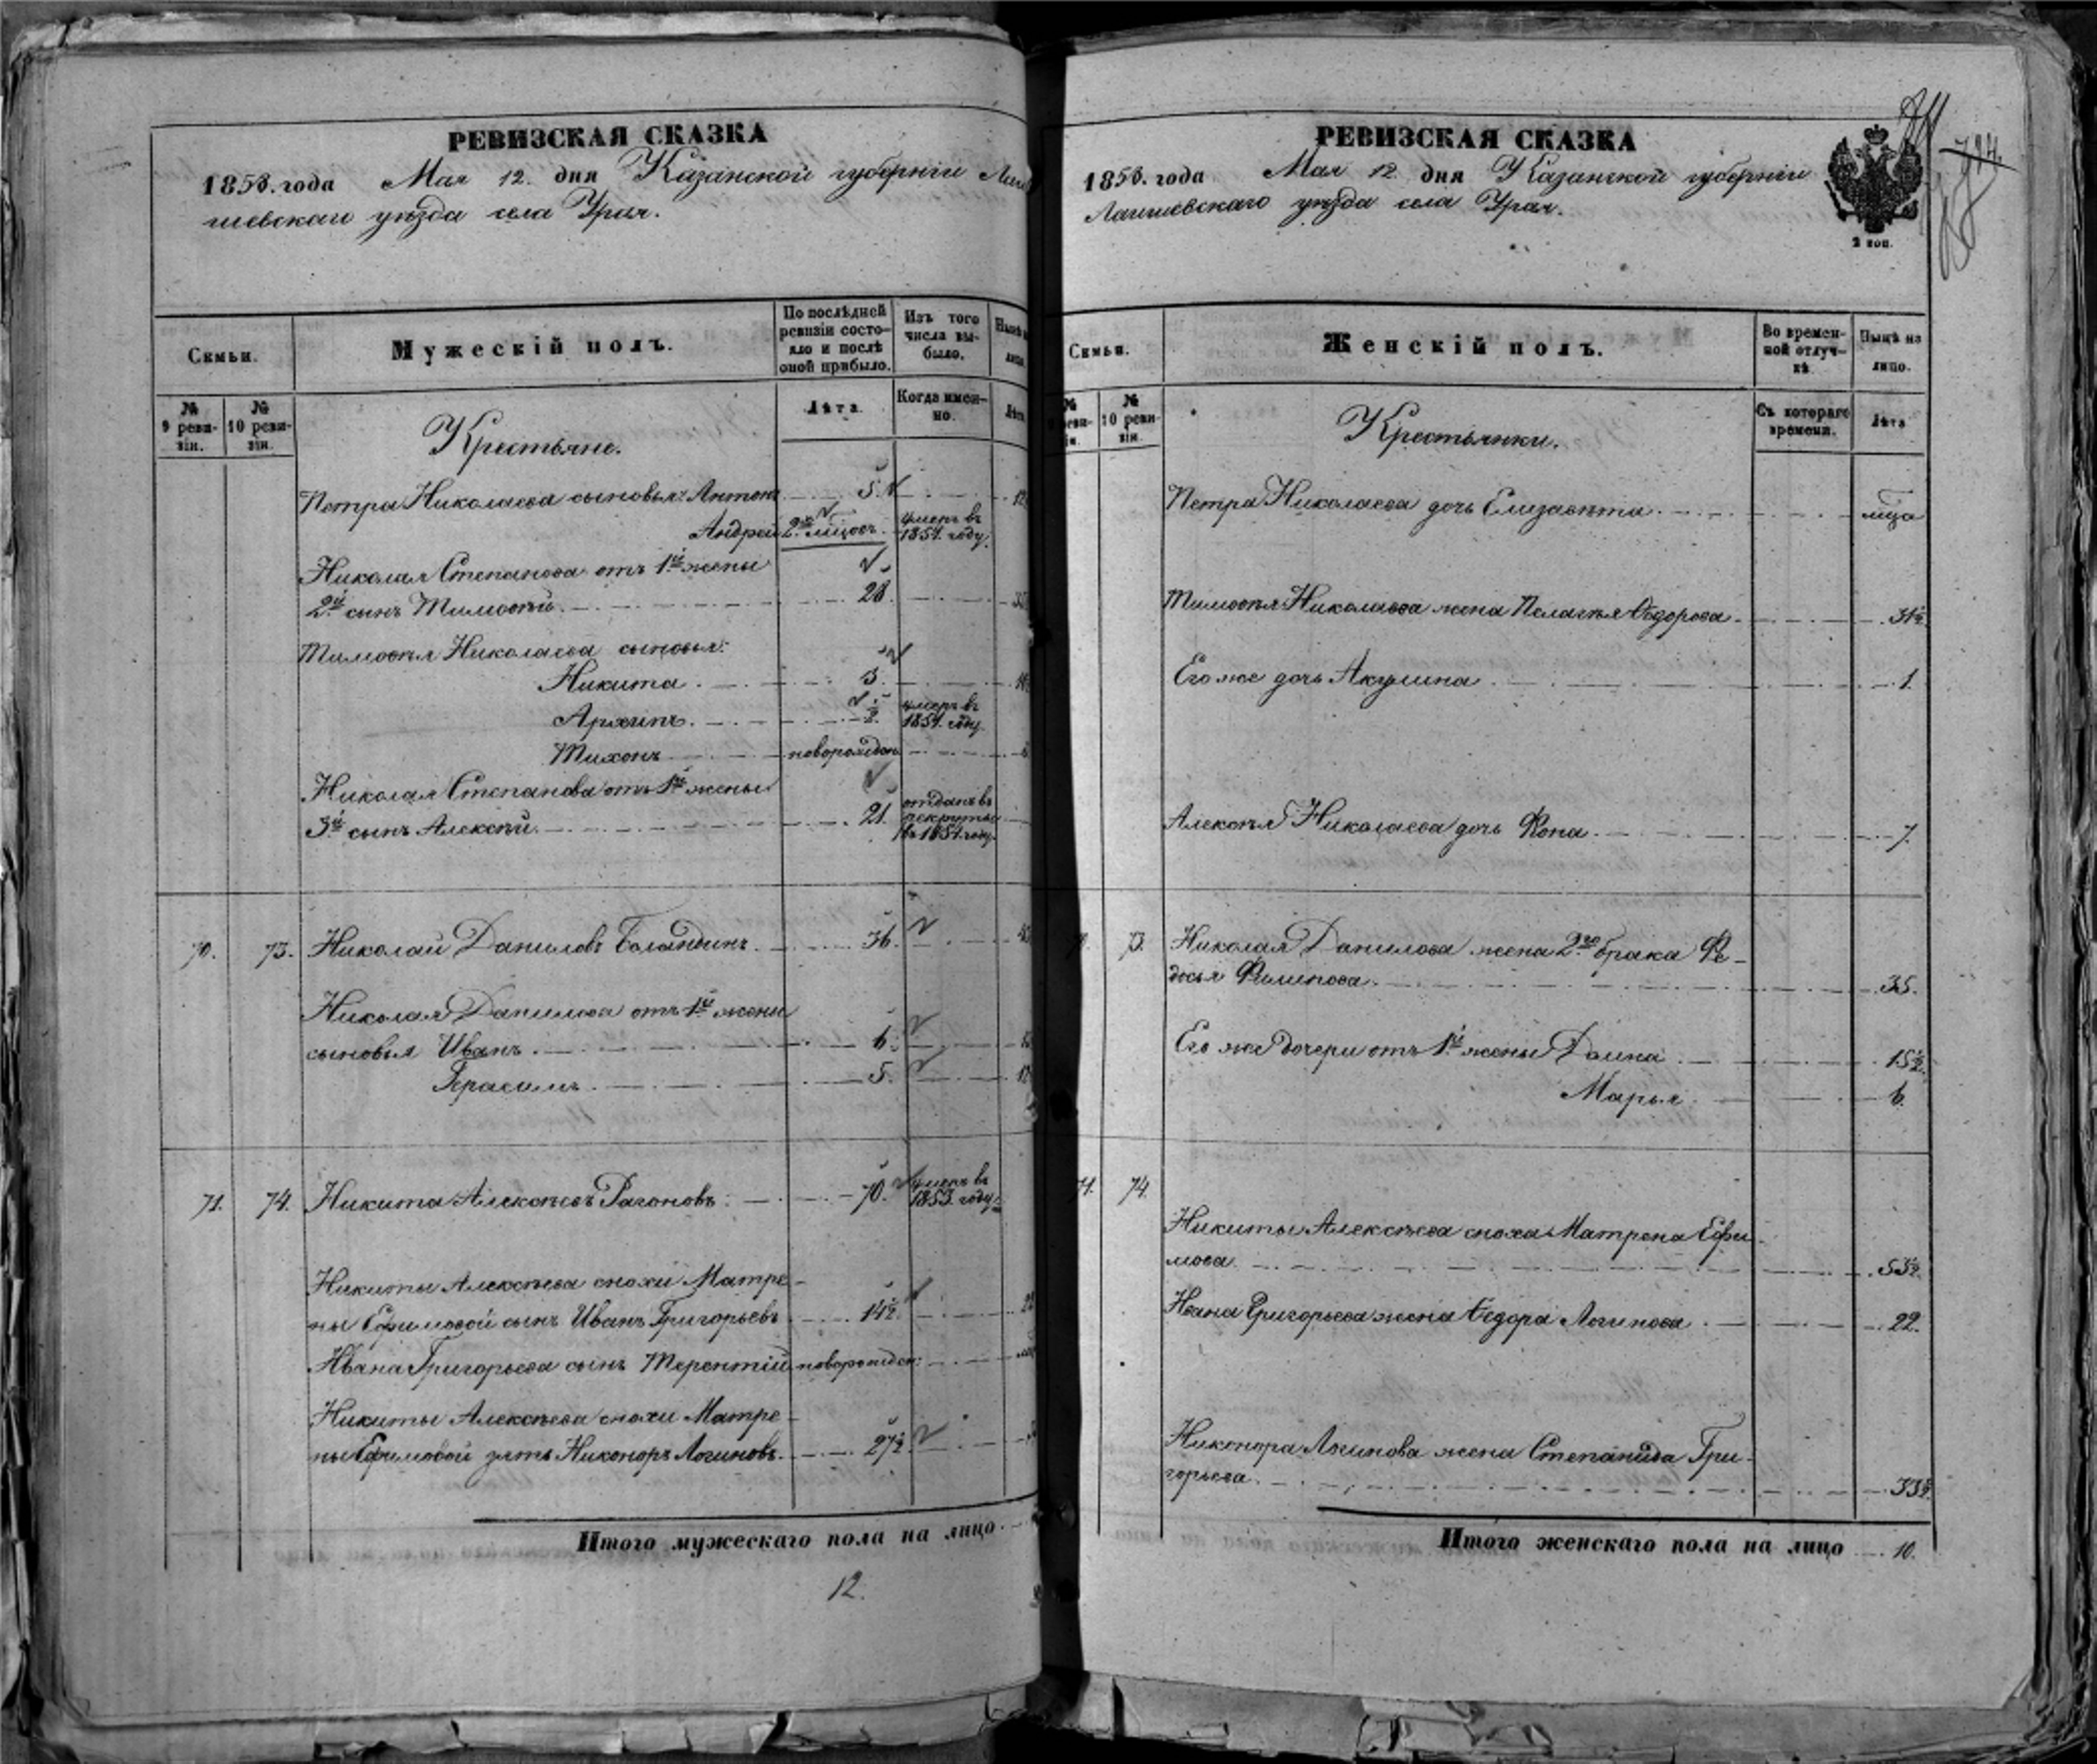 РЕВИЗСКАЯ СКАЗКА
1858. года Мая 12. дня Казанской губерніи Лаи
шевскаго уѣзда села Урая.
Семьи.
Мужескій полъ.
По послѣдней ревизіи состояло и послѣ оной прибыло.
Изъ того числа выбыло.
Нынѣ на лицо.
№ 9 ревизіи.
№ 10 ревизіи.
Лѣта.
Когда именно.
Лѣта
Крестьяне.
Петра Николаева сыновья: Антонъ 5.
Андрей 2хъ мѣсяц. умеръ въ 1854. году.
Николая Степанова отъ 1й жены
2й сынъ Тимофѣй. 28.
Тимофѣя Николаева сыновья:
Никита. 3.
Архипъ. ½. умеръ въ 1854. году.
Тихонъ новорожден
Николая Степанова отъ 1й жены
3й сынъ Алексѣй. 21. отданъ въ рекруты въ 1854. году.
70. 73. Николай Даниловъ Баландинъ. 36.
Николая Данилова отъ 1й жены
сыновья Иванъ. 6.
Герасимъ. 5.
71. 74. Никита Алексѣевъ 70. умеръ въ 1853. году.
Никиты Алексѣева снохи Матре-
ны Ефимовой сынъ Иванъ Григорьевъ 14½.
Ивана Григорьева сынъ Терентій новорожден.
Никиты Алексѣева снохи Матре-
ны Ефимовой зять Никоноръ Логиновъ. 27½
Итого мужескаго пола на лицо
12.
РЕВИЗСКАЯ СКАЗКА
1858. года Мая 12 дня Казанской губерніи
Лаишевскаго уѣзда села Урая.
2 коп.
724
Семьи.
Женскій полъ.
Во временной отлучкѣ
Нынѣ на лицо.
№ 10 ревизіи.
Съ котораго времени.
Лѣта
Крестьянки.
Петра Николаева дочь Елизавѣта.
Тимофѣя Николаева жена Пелагѣя Ѳедорова. 31½
Его же дочь Акулина 1.
Алексѣя Николаева дочь 7.
73. Николая Данилова жена 2го брака Ѳе-
досья Филипова. 35.
Его же дочери отъ 1й жены Домна 15½.
Марья 6.
71. 74.
Никиты Алексѣева сноха Матрена Ефи-
мова. 53½.
Ивана Григорьева жена Ѳедора Логинова 22.
Никонора Логинова жена Степанида Гри-
горьева. 33½.
Итого женскаго пола на лицо 10.